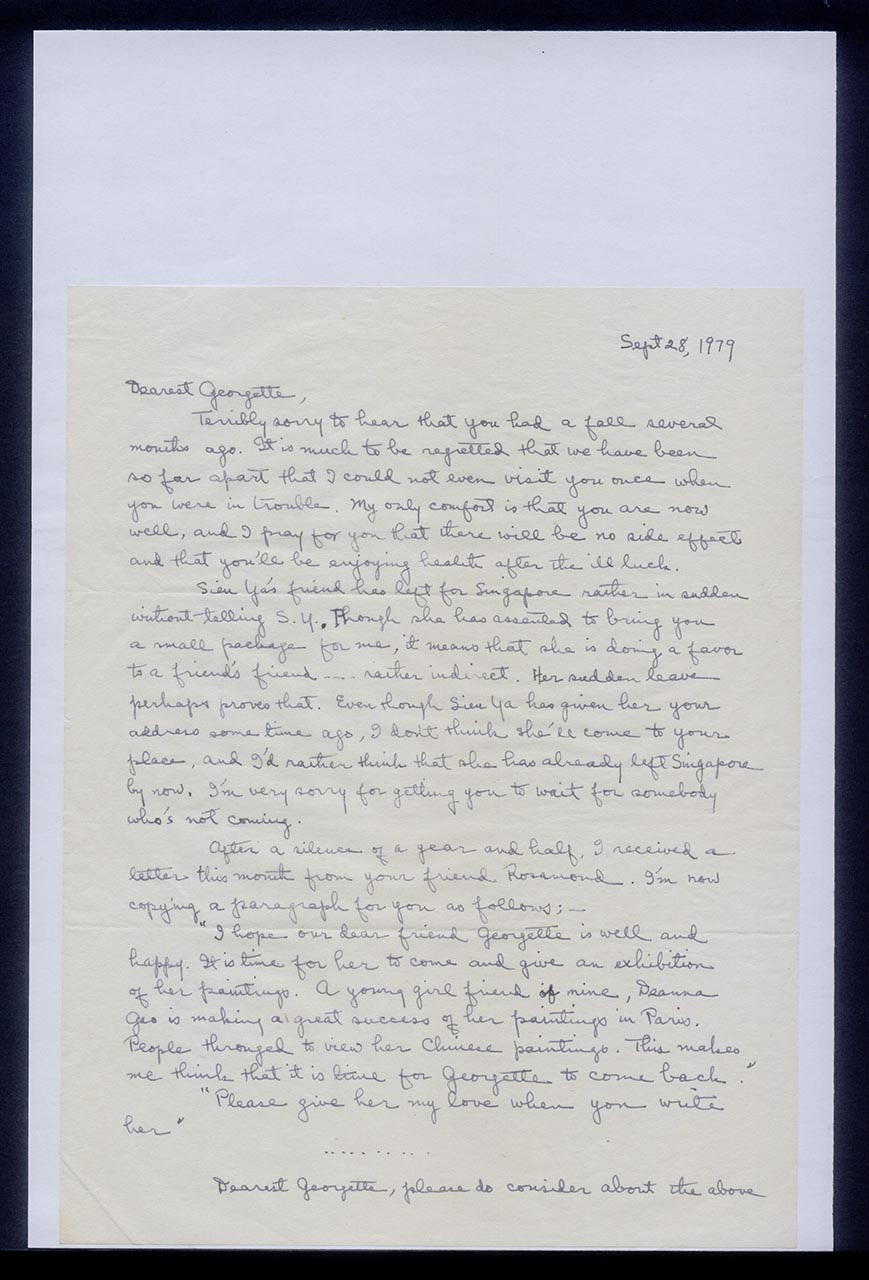 Sept 28, 1979
Dearest Georgette,
Terribly sorry to hear that you had a fall several
months ago. It is much to be regretted that we have been
so far apart that I could not even visit you once when
you were in trouble. My only comfort is that you are now
well, and I pray for you that there will be no side effect
and that you'll be enjoying health after the ill luck.
Sieu Ya's friend has left for Singapore rather in sudden
without telling S.Y. Though she has assented to bring you
a small package for me, it means that she is doing a favor
to a friend's friend ---- rather indirect. Her sudden leave
perhaps proves that. Even though Sieu Ya has given her your
address some time ago, I don't think she'll come to your
place, and I'd rather think that she has already left Singapore
by now. I'm very sorry for getting you to wait for somebody
who's not coming.
After a silence of a year and half, I received a
letter this month from your friend Rosamond. I'm now
copying a paragraph for you as follows; —
"I hope our dear friend Georgette is well and
happy. It is time for her to come and give an exhibition
of her paintings. A young girl friend of mine, Deanna
Gao is making a great success of her paintings in Paris.
People thronged to view her Chinese paintings. This makes
me think that it is time for Georgette to come back."
"Please give her my love when you write
her"
.........
Dearest Georgette, please do consider about the above